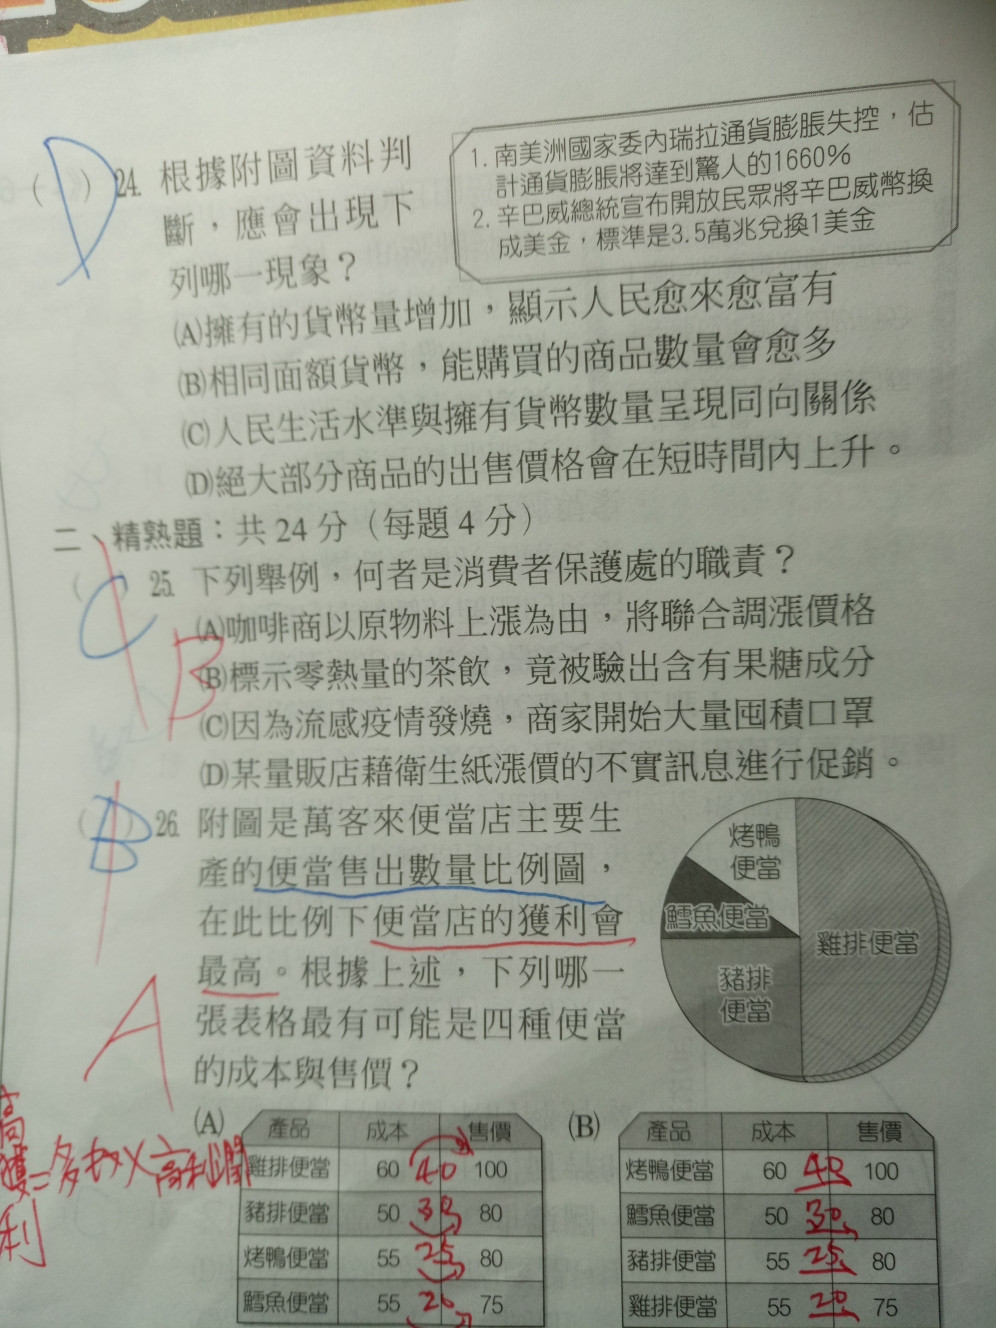 D
( ) 24. 根據附圖資料判
斷，應會出現下
列哪一現象？
1. 南美洲國家委內瑞拉通貨膨脹失控，估
計通貨膨脹將達到驚人的1660%
2. 辛巴威總統宣布開放民眾將辛巴威幣換
成美金，標準是3.5萬兆兌換1美金
(A)擁有的貨幣量增加，顯示人民愈來愈富有
(B)相同面額貨幣，能購買的商品數量會愈多
(C)人民生活水準與擁有貨幣數量呈現同向關係
(D)絕大部分商品的出售價格會在短時間內上升。
二、精熟題：共 24 分（每題 4 分）
C
B
( ) 25. 下列舉例，何者是消費者保護處的職責？
(A)咖啡商以原物料上漲為由，將聯合調漲價格
(B)標示零熱量的茶飲，竟被驗出含有果糖成分
(C)因為流感疫情發燒，商家開始大量囤積口罩
(D)某量販店藉衛生紙漲價的不實訊息進行促銷。
A
( ) 26. 附圖是萬客來便當店主要生
產的便當售出數量比例圖，
在此比例下便當店的獲利會
最高。根據上述，下列哪一
張表格最有可能是四種便當
的成本與售價？
烤鴨
便當
鱈魚便當
雞排便當
豬排
便當
高獲利=多数X高利潤
(A)
產品 成本 售價
雞排便當 60 40 100
豬排便當 50 30 80
烤鴨便當 55 25 80
鱈魚便當 55 20 75
(B)
產品 成本 售價
烤鴨便當 60 40 100
鱈魚便當 50 30 80
豬排便當 55 25 80
雞排便當 55 20 75